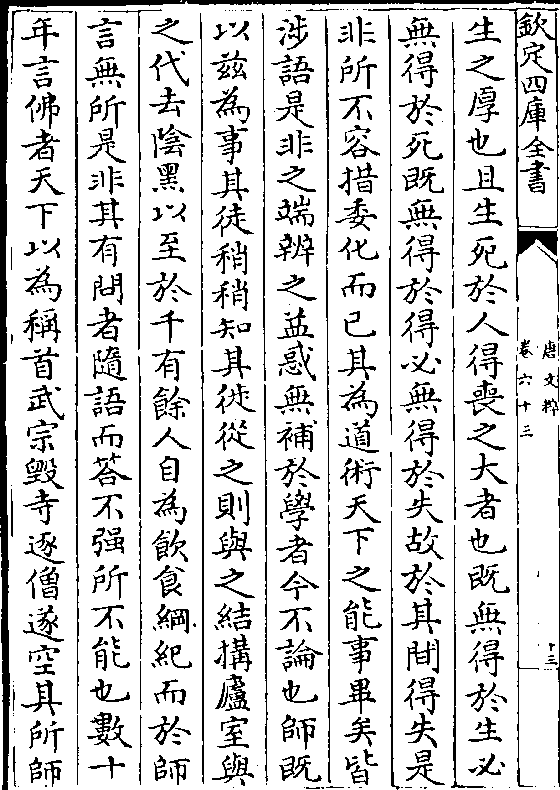 欽定四庫全書
唐文粹
卷六十三
十三
生之厚也且生死於人得喪之大者也既無得於生必
無得於死既無得於死既無得於得必無得於失故於其間得失是
非所不容措委化而已其為道術天下之能事畢矣皆
涉語是非之端辨之益惑無補於學者今不論也師既
以兹為事其徒稍稍知其徙從之則與之結搆廬室與
之代去陰黑以至於千有餘人自為飲食綱紀而於師
言無所是非其有問者隨語而答不强所不能也數十
年言佛者天下以為稱首武宗毀寺逐僧遂空其所師